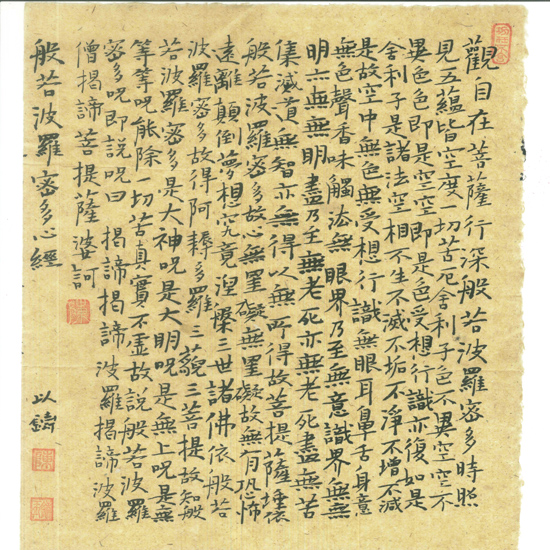 觀自在菩薩行深般若波羅密多時照
見五蘊皆空度一切苦厄舍利子色不異空空不
異色色即是空空即是色受想行識亦復如是
舍利子是諸法空相不生不滅不垢不淨不增不減
是故空中無色無受想行識無眼耳鼻舌身意
無色聲香味觸法無眼界乃至無意識界無無
明亦無無明盡乃至無老死亦無老死盡無苦
集滅道無智亦無得以無所得故菩提薩埵依
般若波羅密多故心無罣礙無罣礙故無有恐怖
遠離顛倒夢想究竟涅槃三世諸佛依般若
波羅密多故得阿耨多羅三藐三菩提故知般
若波羅密多是大神呪是大明呪是無上呪是無
等等呪能除一切苦真實不虛故說般若波羅
密多呪即說呪曰 揭諦揭諦 波羅揭諦 波羅
僧揭諦 菩提薩婆訶
般若波羅密多心經
以鑄